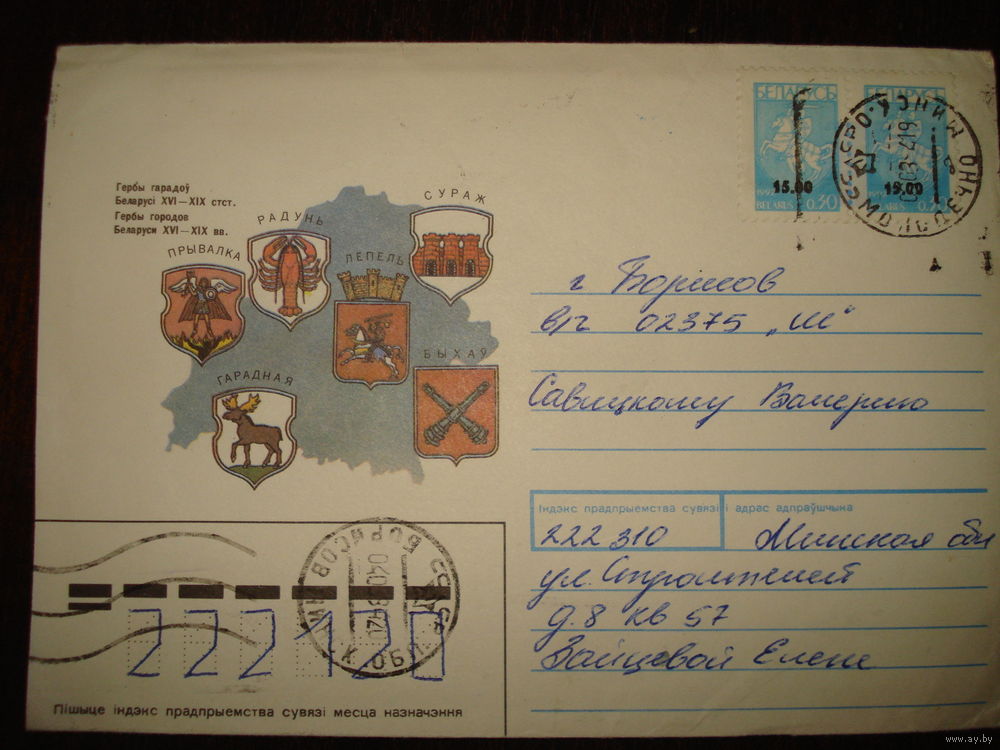 Гербы гарадоў
Беларусі XVI—XIX стст.
Гербы городов
Беларуси XVI—XIX вв.
ПРЫВАЛКА
РАДУНЬ
СУРАЖ
ЛЕПЕЛЬ
ГАРАДНАЯ
БЫХАЎ
БЕЛАРУСЬ БЕЛАРУСЬ
15.00 15.00
BELARUS 0.30
г Борисов
в/г 02375 „Ш"
Савицкому Валерию
Індэкс прадпрыемства сувязі і адрас адпраўшчыка
222310 Минская обл
ул. Строителей
д.8 кв 57
Зайцевой Елене
БОРИСОВ МИНСК. ОБЛ.
222120
Пішыце індэкс прадпрыемства сувязі месца назначэння
www.ay.by